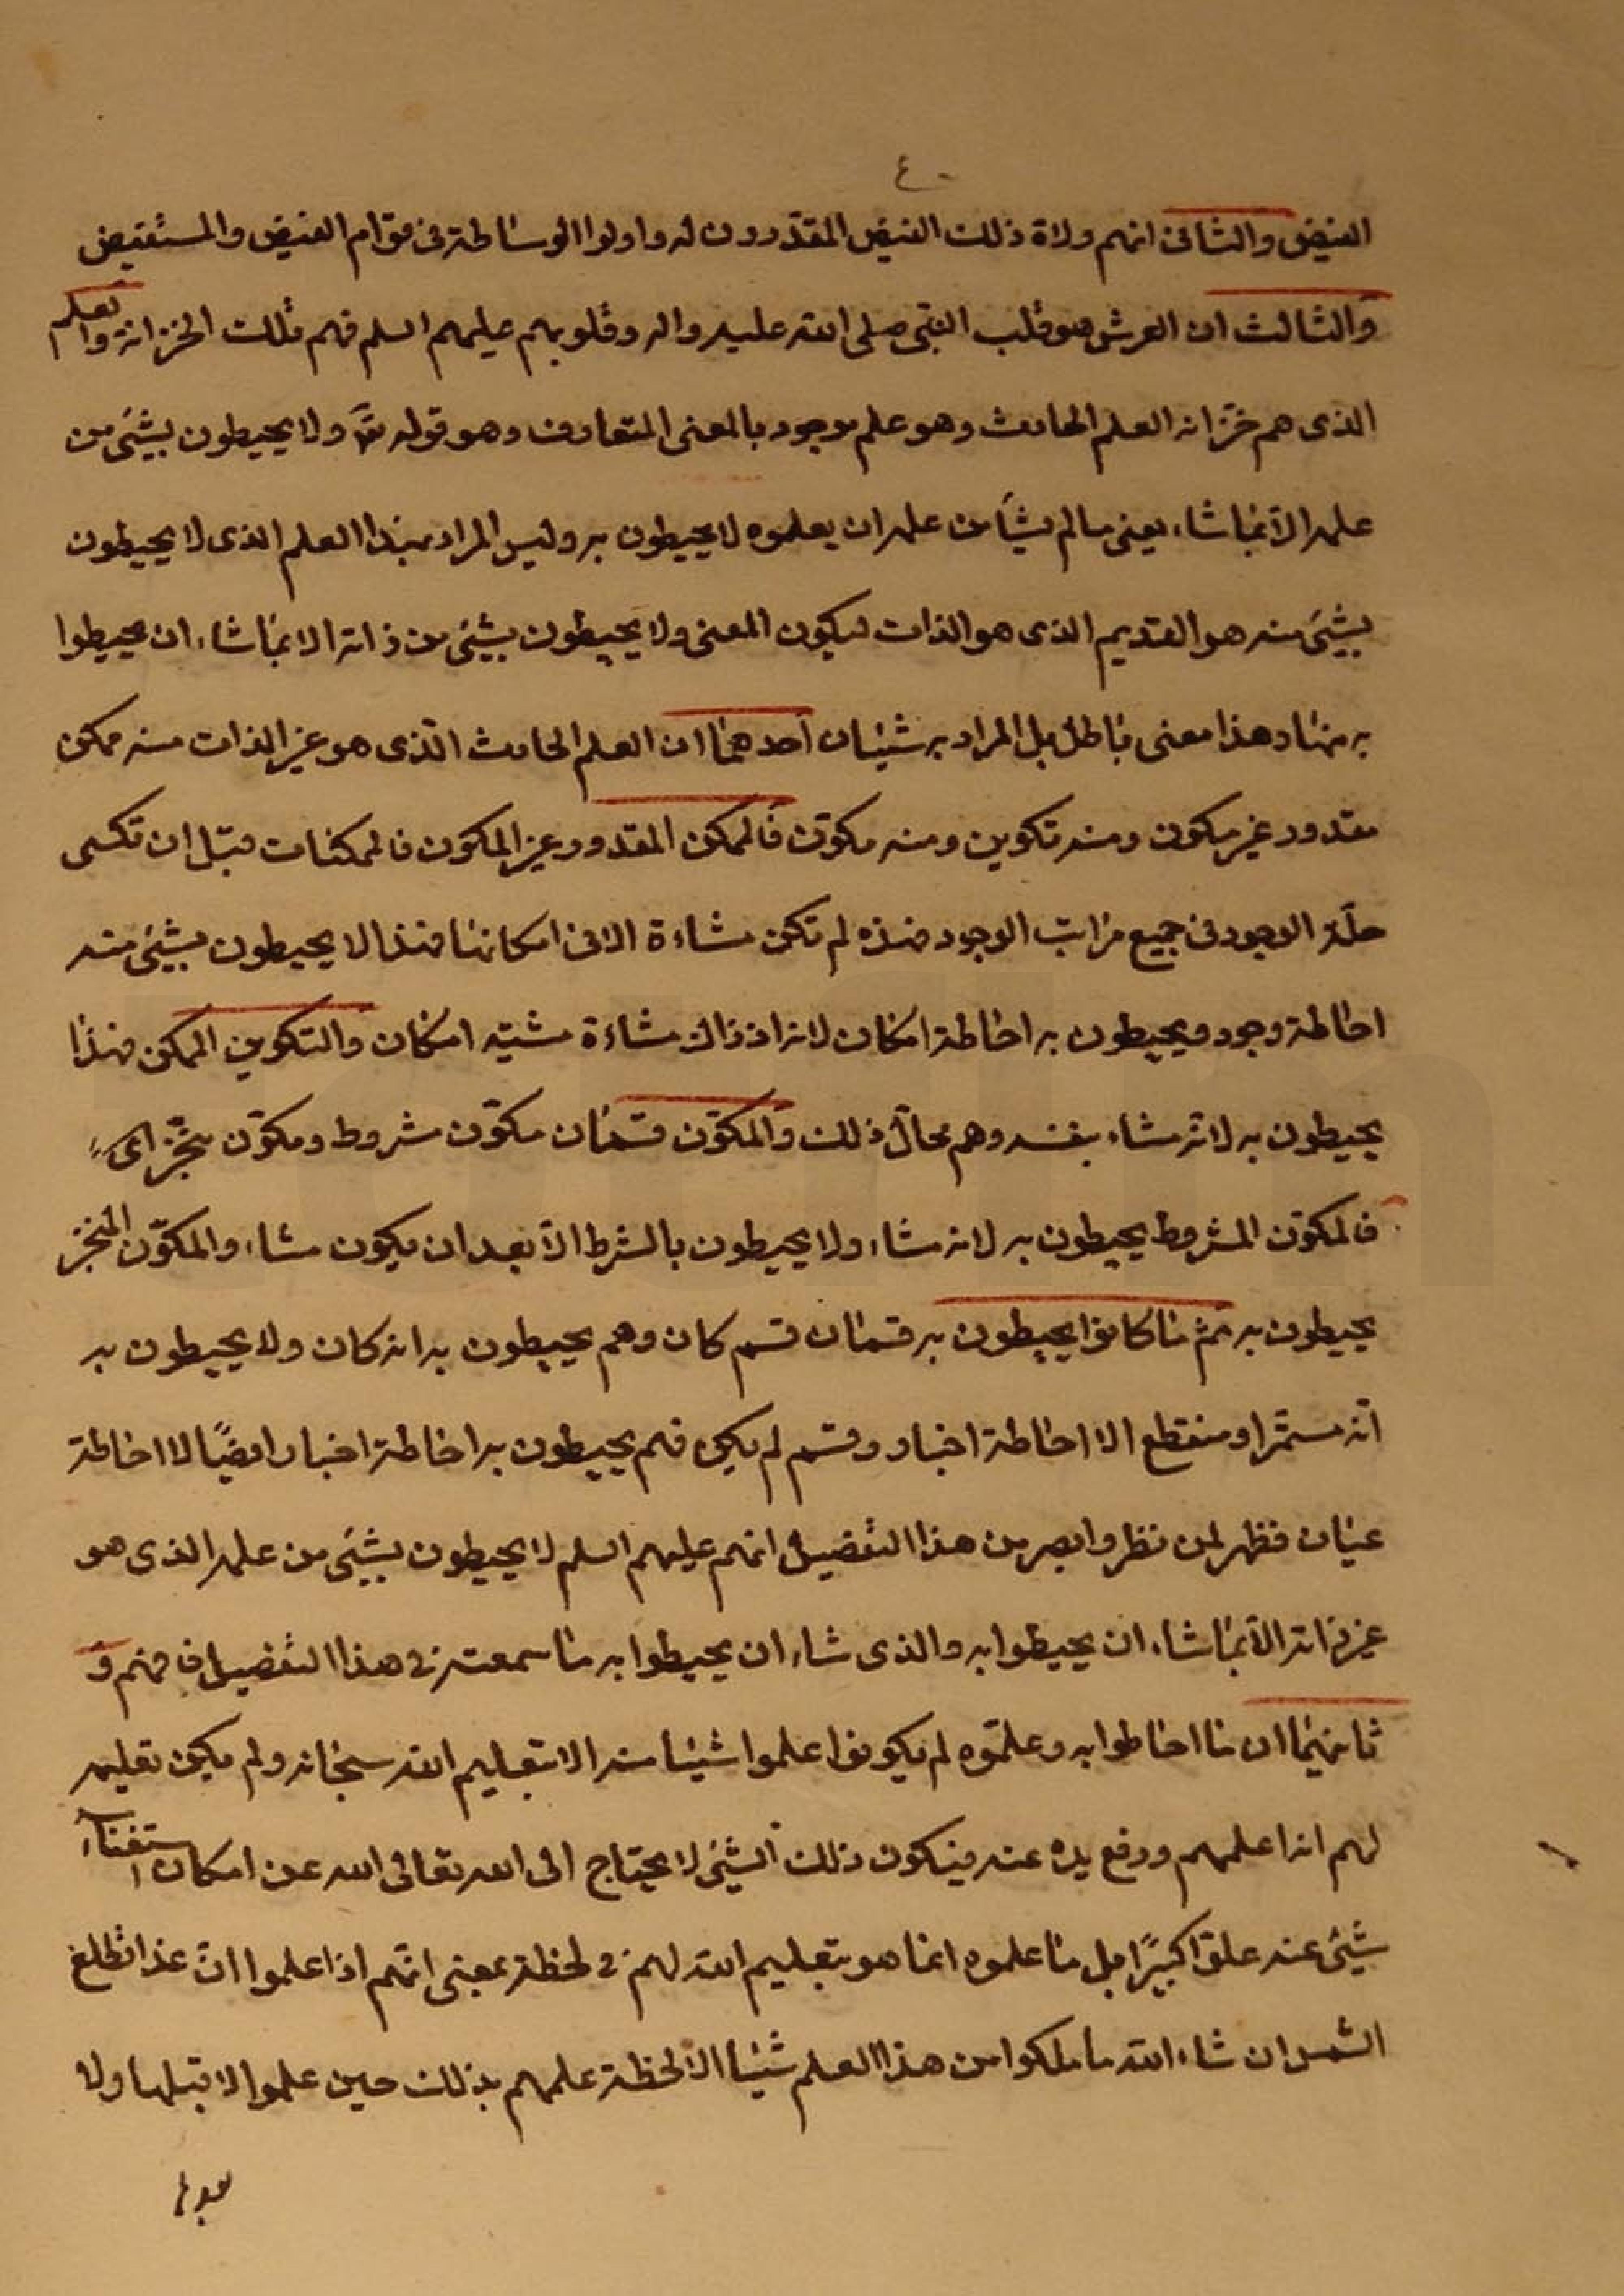 ٤٠
الفيض والثانى انهم ولاة ذلك الفيض المقدّرون له واولوا الوساطة فى مقام الفيض والمستفيض
والثالث ان العرش هو قلب النبى صلى الله عليه واله وقلوبهم عليهم السلم فهم تلك الخزانة والعلم
الذى هم خزّانه العلم الحادث وهو علم موجود بالمعنى المتعارف وهو قوله تعَ ولا يحيطون بشىء من
علمه الّا بما شاء يعنى ما لم يشأ من علمه ان يعلموه لا يحيطون به وليس المراد بهذا العلم الذى لا يحيطون
بشىء منه هو القديم الذى هو الذات ليكون المعنى ولا يحيطون بشىء من ذاته الا بما شاء ان يحيطوا
به منها وهذا معنى باطل بل المراد به شيئان احدهما ان العلم الحادث الّذى هو غير الذات منه ممكن
مقدور غير مكون ومنه تكوين ومنه مكوّن فالممكن المقدور غير المكون فالممكنات قبل ان تكسى
حلّة الوجود فى جميع مراتب الوجود فهذه لم تكن مشاءة الا فى امكانها فهذا لا يحيطون بشىء منه
احاطة وجود ويحيطون به احاطة امكان لانه اذ ذاك مشاءة مشيّه امكان والتكوين الممكن فهذا
يحيطون به لانّه مشاء بنفسه وهم محالّ ذلك والمكوّن قسمان مكوّن مشروط ومكوّن منجّز
فالمكوّن المشروط يحيطون به لانه مشاء ولا يحيطون بالشرط الّا بعد ان يكون مشاء والمكوّن المنجّز
يحيطون به ثم ما كانوا يحيطون به قسمان قسم كان وهم يحيطون به انه كان ولا يحيطون به
انّه مستمّر او منقطع الا احاطة اخبار وقسم لم يكن فهم يحيطون به احاطة اخبار ايضًا لا احاطة
عيان فظهر لمن نظر وابصر من هذا التفصيل انهم عليهم السلم لا يحيطون بشىء من علمه الذى هو
غير ذاته الّا بما شاء ان يحيطوا به والذى شاء ان يحيطوا به ما سمعته فى هذا التفصيل فافهم و
ثانيهما ان ما احاطوا به وعلّموه لم يكونوا علموا شيئا منه الا بتعليم الله سبحانه ولم يكن تعليمه
لهم انه اعلمهم ورفع يده عنه فيكون ذلك الشىء لا يحتاج الى الله تعالى الله عن امكان استغناء
شىء عنه علوّا كبيرًا بل ما علموه انما هو بتعليم الله لهم فى لحظة بمعنى انّهم اذا علموا انّ غدا تطلع
الشمس ان شاء الله ما ملكوا من هذا العلم شيئا الا لحظة علمهم بذلك حين علموا لا قبلها ولا